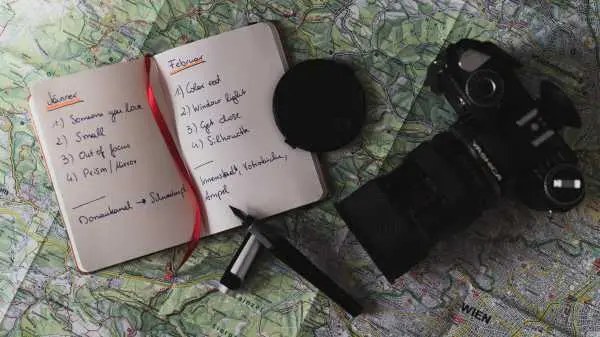 Jänner
1) Someone you love
2) Small
3) Out of focus
4) Prism / Mirror
Donaukanal → Schwedenpl
Februar
1) Color red
2) Window light
3) Get close
4) Silhouette
Innenstadt, Votivkirche,
Ampel
YASHICA
WIEN